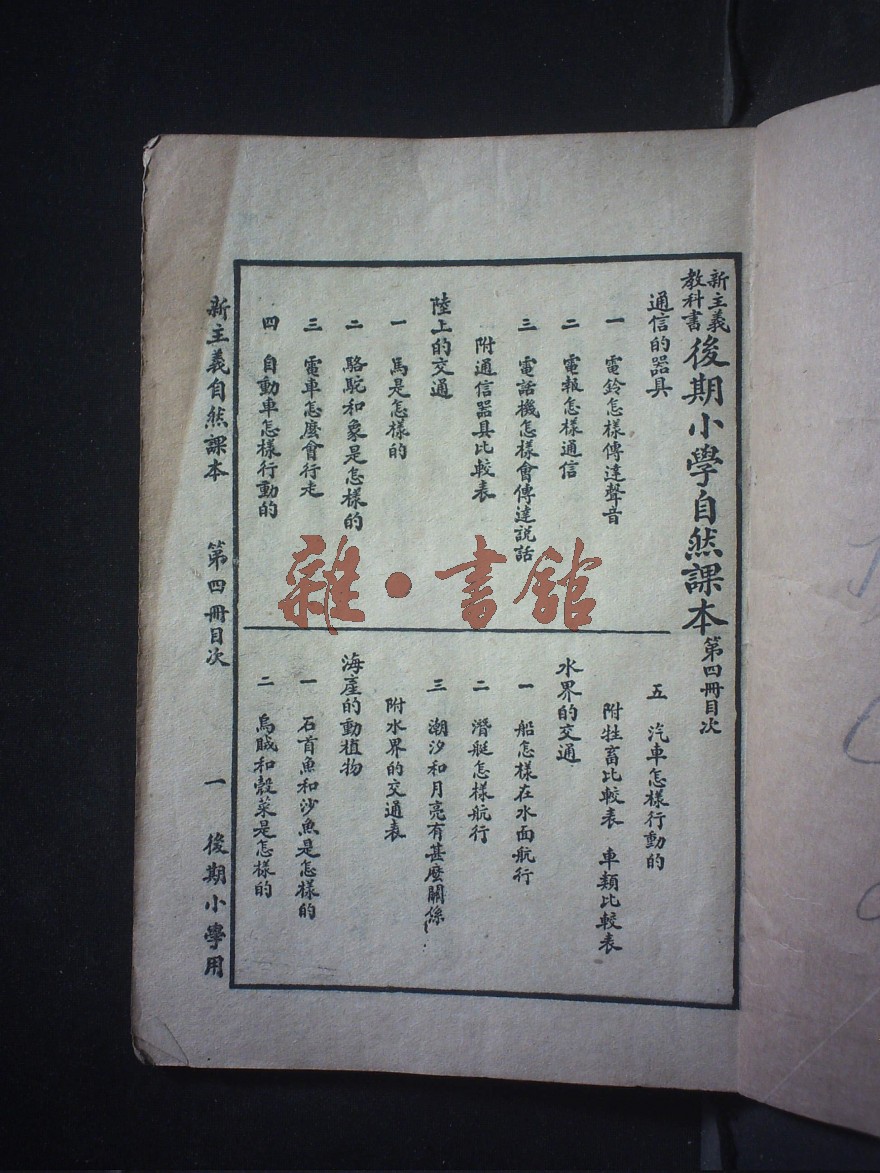 新主義
教科書
後期小學自然課本
第四冊目次
通信的器具
一 電鈴怎樣傳達聲音
二 電報怎樣通信
三 電話機怎樣會傳達説話
附通信器具比較表
陸上的交通
一 馬是怎樣的
二 駱駝和象是怎樣的
三 電車怎麼會行走
四 自動車怎樣行動的
五 汽車怎樣行動的
附牲畜比較表 車類比較表
水界的交通
一 船怎樣在水面航行
二 潛艇怎樣航行
三 潮汐和月亮有甚麼關係
附水界的交通表
海產的動植物
一 石首魚和沙魚是怎樣的
二 烏賊和穀菜是怎樣的
新主義自然課本 第四冊目次 一 後期小學用
雜·書館